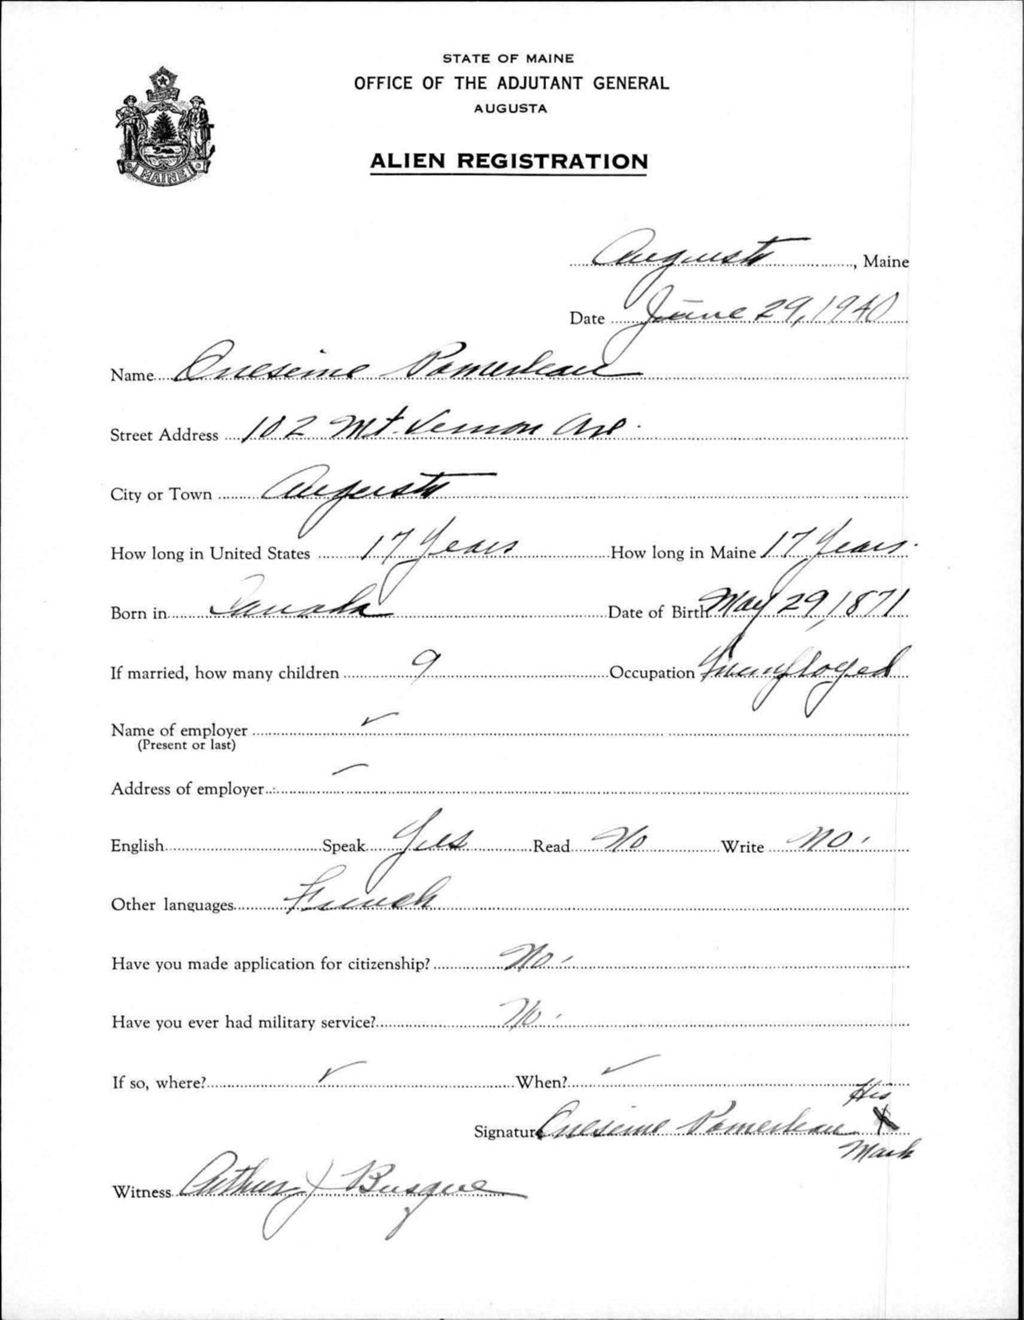 STATE OF MAINE
OFFICE OF THE ADJUTANT GENERAL
AUGUSTA
ALIEN REGISTRATION
MAINE
Augusta, Maine
Date June 29, 1940
Name Onesime Pomerleau
Street Address 102 Mt. Vernon Ave.
City or Town Augusta
How long in United States 17 Years How long in Maine 17 Years.
Born in Canada Date of Birth May 29, 1871
If married, how many children 9 Occupation Unemployed
Name of employer ✓
(Present or last)
Address of employer ✓
English Speak Yes Read No Write No.
Other languages French
Have you made application for citizenship? No.
Have you ever had military service? No.
If so, where? ✓ When? ✓
His
Signature Onesime Pomerleau X
Mark
Witness Arthur J Busque